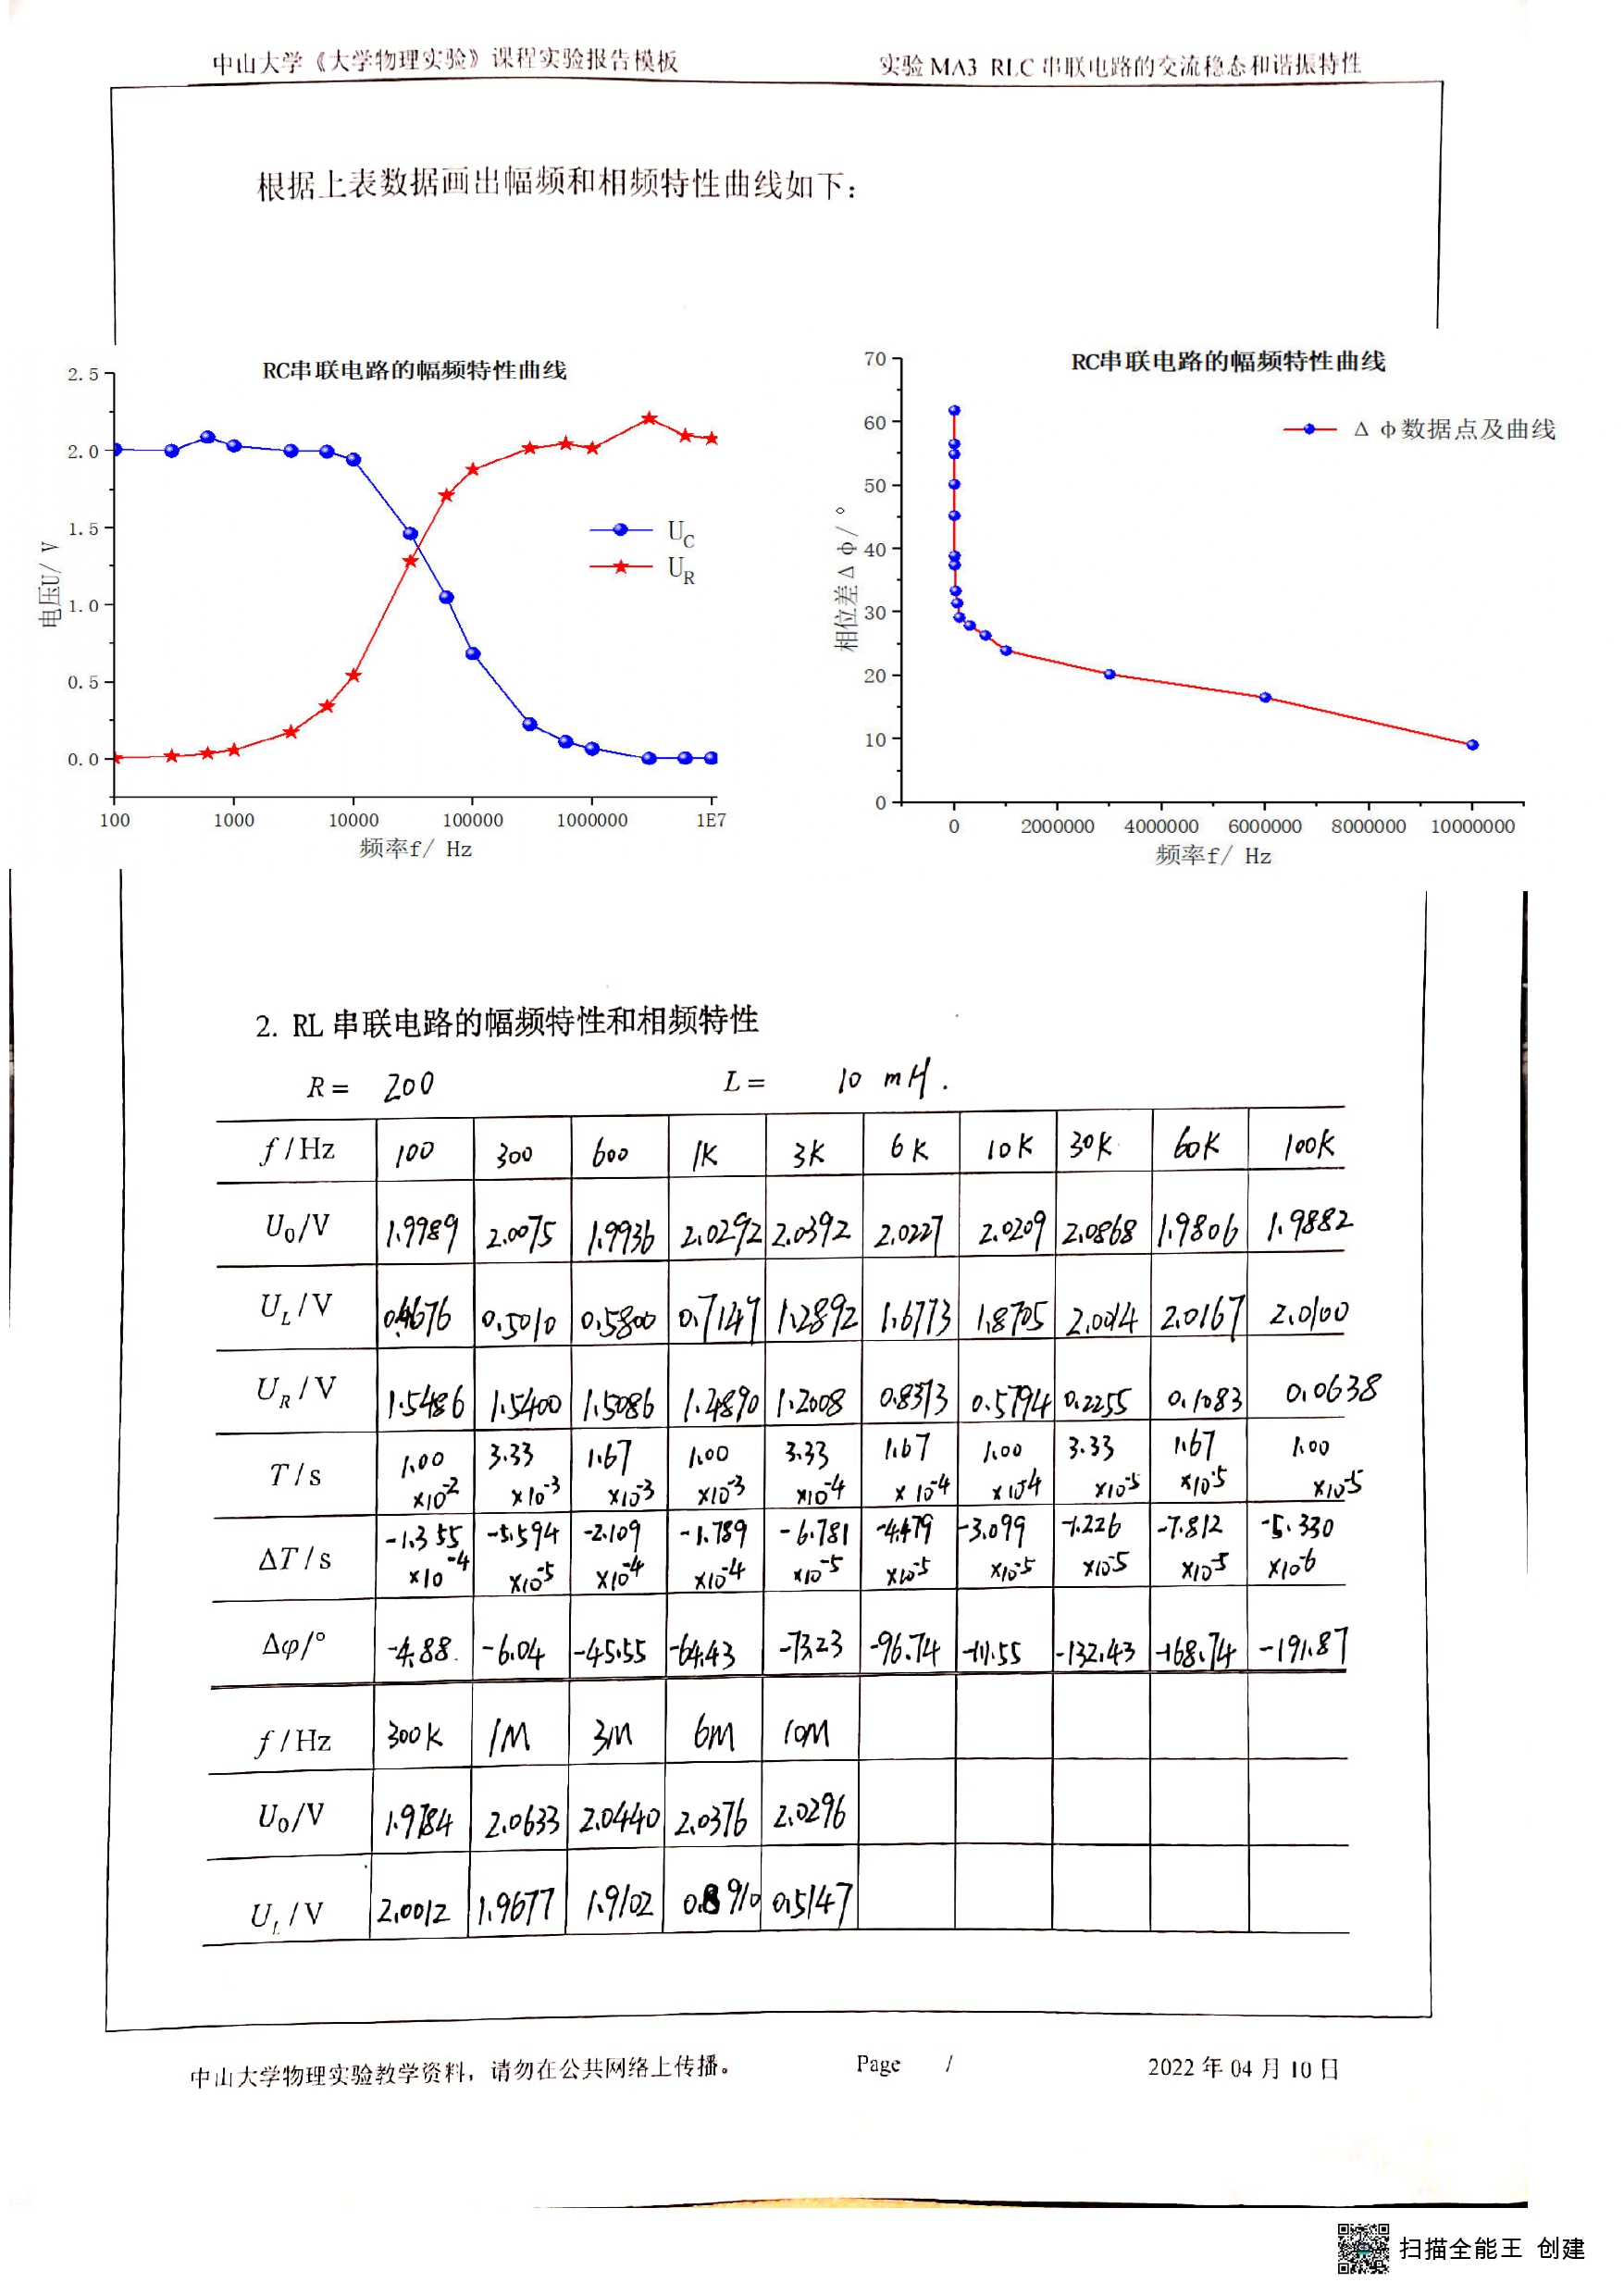 中山大学《大学物理实验》课程实验报告模板 实验 MA3 RLC 串联电路的交流稳态和谐振特性
根据上表数据画出幅频和相频特性曲线如下：
RC串联电路的幅频特性曲线
2.5
2.0
1.5
1.0
0.5
0.0
电压U/ V
U_C
U_R
100 1000 10000 100000 1000000 1E7
频率f/ Hz
RC串联电路的幅频特性曲线
70
60
50
40
30
20
10
0
相位差Δφ/°
Δφ数据点及曲线
0 2000000 4000000 6000000 8000000 10000000
频率f/ Hz
2. RL 串联电路的幅频特性和相频特性
R = 200 L = 10 mH.
f/Hz 100 300 600 1K 3K 6K 10K 30K 60K 100K
U₀/V 1.9989 2.0075 1.9936 2.0292 2.0392 2.0227 2.0209 2.0868 1.9806 1.9882
U_L/V 0.4676 0.5010 0.5800 0.7147 1.2892 1.6773 1.8705 2.0014 2.0167 2.0100
U_R/V 1.5486 1.5400 1.5086 1.4890 1.2008 0.8373 0.5794 0.2255 0.1083 0.0638
T/s 1.00×10⁻² 3.33×10⁻³ 1.67×10⁻³ 1.00×10⁻³ 3.33×10⁻⁴ 1.67×10⁻⁴ 1.00×10⁻⁴ 3.33×10⁻⁵ 1.67×10⁻⁵ 1.00×10⁻⁵
ΔT/s -1.355×10⁻⁴ -5.594×10⁻⁵ -2.109×10⁻⁴ -1.789×10⁻⁴ -6.781×10⁻⁵ -4.479×10⁻⁵ -3.099×10⁻⁵ -1.226×10⁻⁵ -7.812×10⁻⁵ -5.330×10⁻⁶
Δφ/° -4.88 -6.04 -45.55 -64.43 -73.23 -96.74 -111.55 -132.43 -168.74 -191.87
f/Hz 300K 1M 3M 6M 10M
U₀/V 1.9784 2.0633 2.0440 2.0376 2.0296
U_L/V 2.0012 1.9677 1.9102 0.8910 0.5147
中山大学物理实验教学资料，请勿在公共网络上传播。 Page / 2022 年 04 月 10 日
扫描全能王 创建